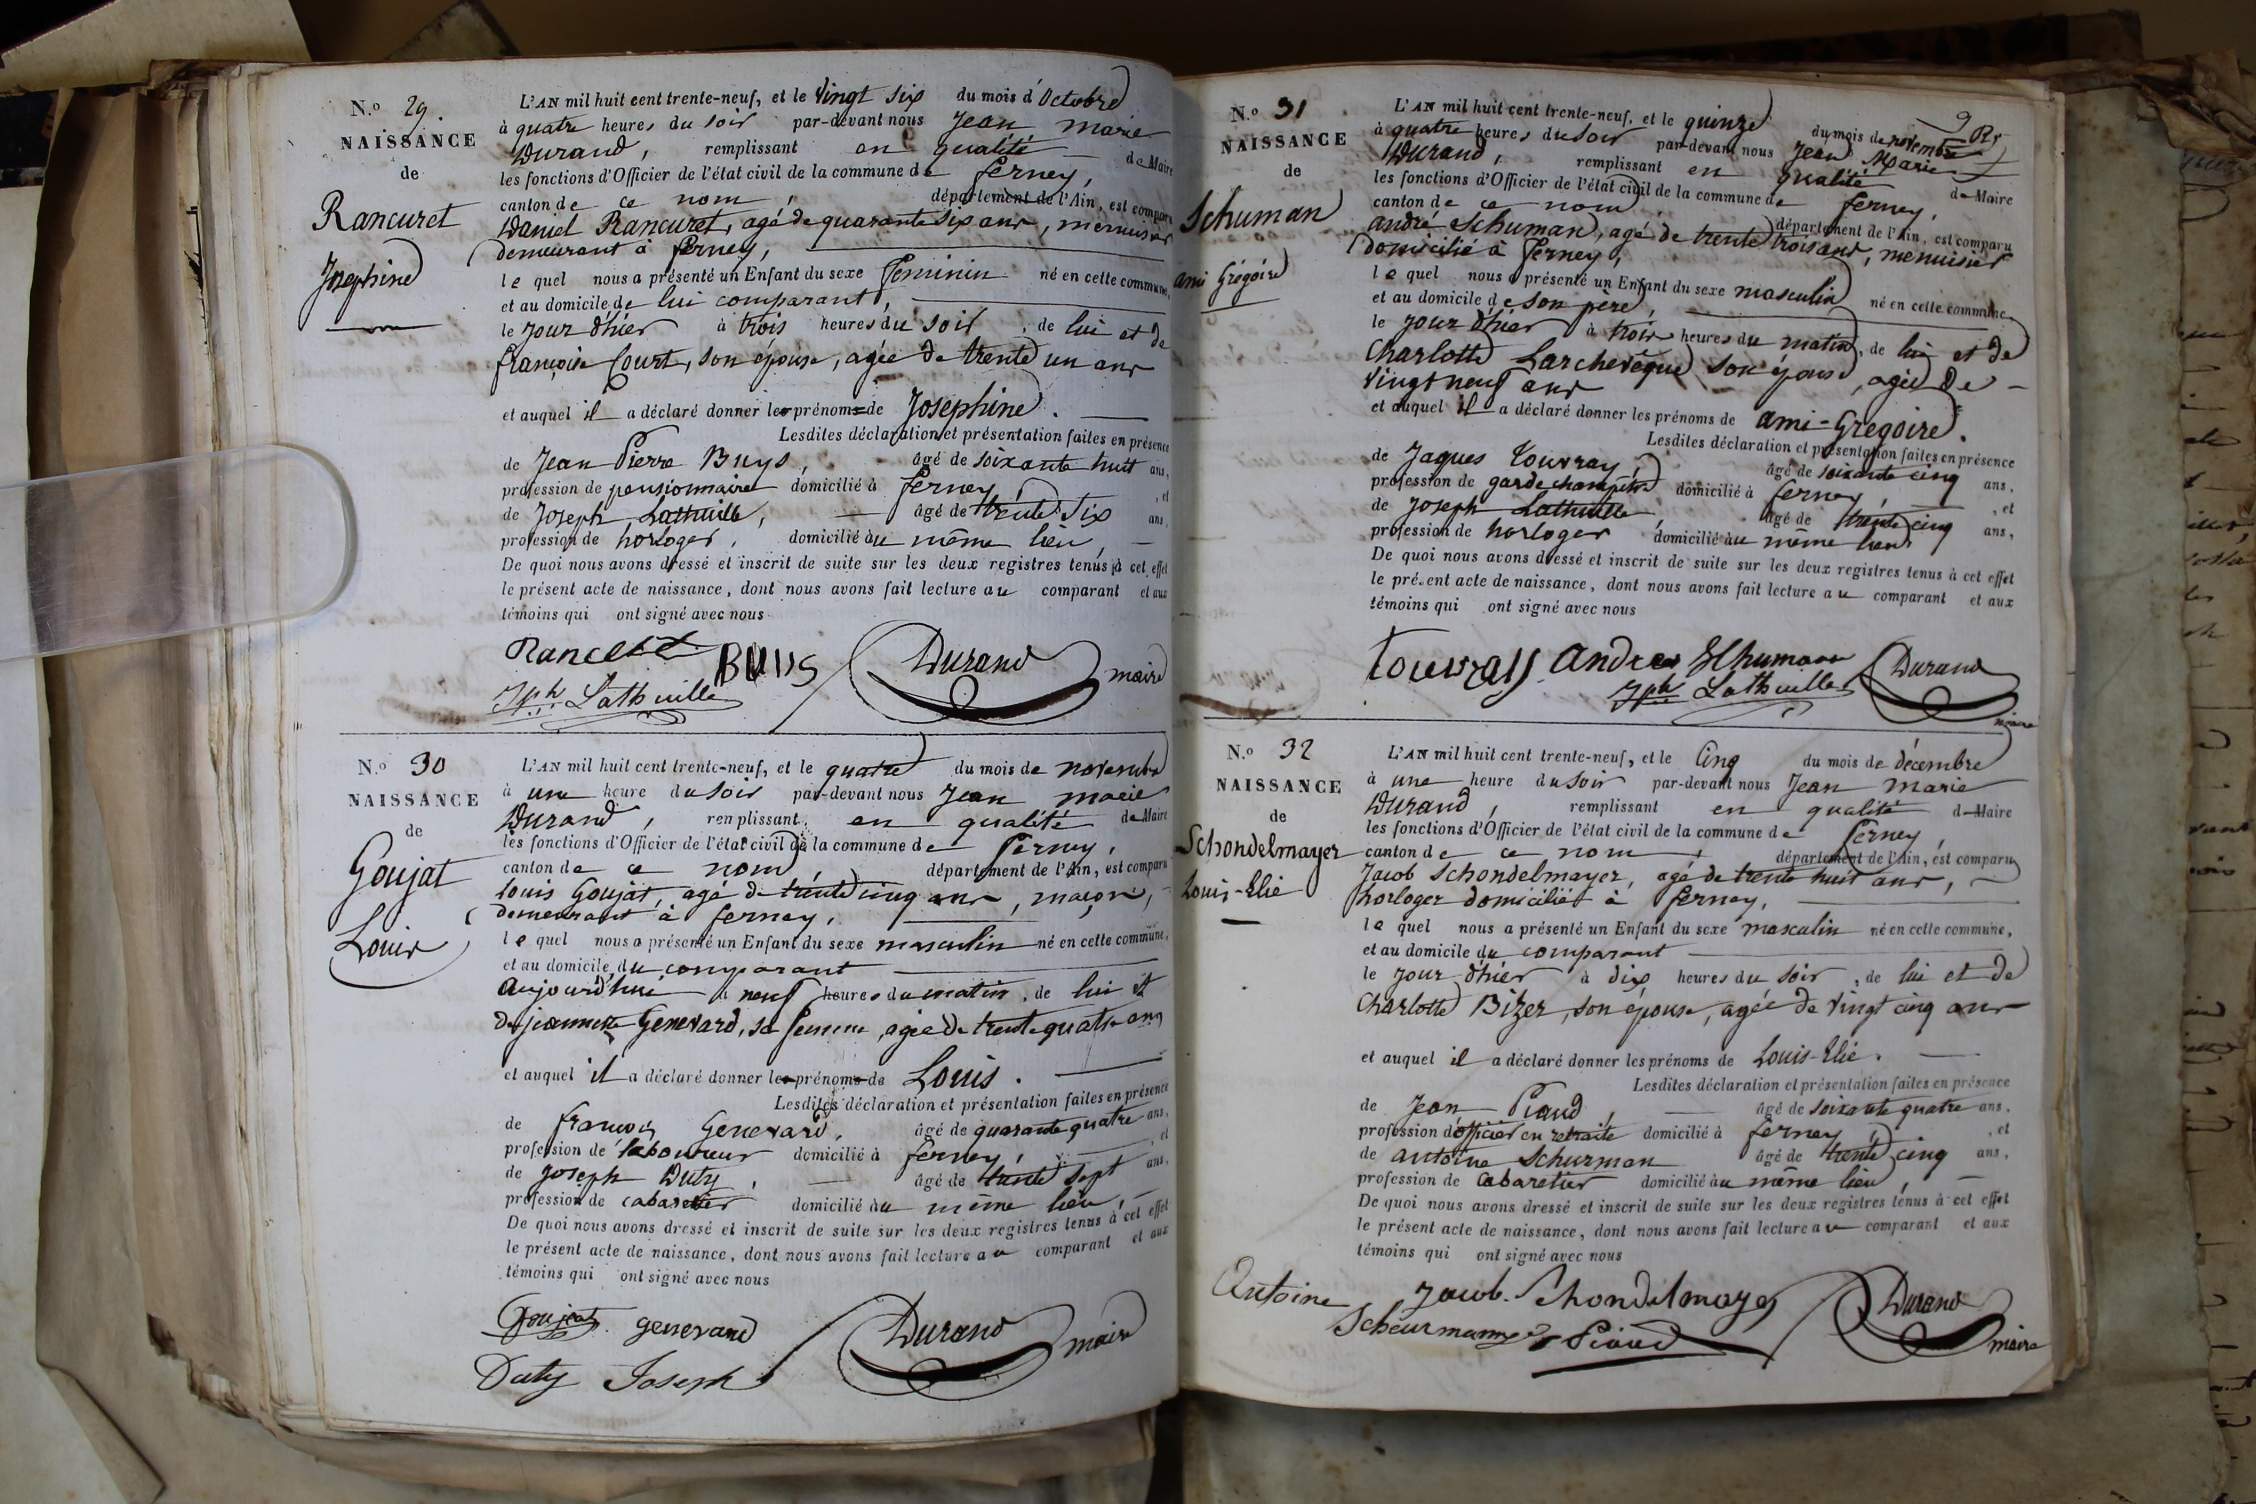 N.o 29.
NAISSANCE
de
Rancuret
Josephine
L'AN mil huit cent trente-neuf, et le vingt six du mois d'Octobre
à quatre heures du soir par-devant nous Jean marie
Durand, remplissant en qualité de Maire
les fonctions d'Officier de l'état civil de la commune de ferney,
canton de ce nom, département de l'Ain, est comparu
Daniel Rancuret, agé de quarante six ans, menuisier
demeurant à ferney,
le quel nous a présenté un Enfant du sexe feminin né en cette commune,
et au domicile de lui comparant,
le jour d'hier à trois heures du soir, de lui et de
françoise Court, son épouse, agée de trente un ans
et auquel il a déclaré donner les prénoms de Josephine.
Lesdites déclaration et présentation faites en présence
de Jean Pierre Buys, âgé de soixante huit ans,
profession de pensionnaire domicilié à ferney, et
de Joseph Lathuille, âgé de trente six ans,
profession de horloger, domicilié au même lieu,
De quoi nous avons dressé et inscrit de suite sur les deux registres tenus à cet effet
le présent acte de naissance, dont nous avons fait lecture au comparant et aux
témoins qui ont signé avec nous
BUYS Durand maire
Jph Lathuille
N.o 30
NAISSANCE
de
Goujat
Louis
L'AN mil huit cent trente-neuf, et le quatre du mois de novembre
à une heure du soir par-devant nous Jean marie
Durand, remplissant en qualité de Maire
les fonctions d'Officier de l'état civil de la commune de ferney,
canton de ce nom, département de l'Ain, est comparu
louis Goujat, agé de trente cinq ans, maçon,
demeurant à ferney,
le quel nous a présenté un Enfant du sexe masculin né en cette commune,
et au domicile du comparant
aujourd'hui à neuf heures du matin, de lui et
de jeannette Genevard, sa femme, agée de trente quatre ans
et auquel il a déclaré donner les prénoms de Louis.
Lesdites déclaration et présentation faites en présence
de françois Genevard, âgé de quarante quatre ans,
profession de laboureur domicilié à ferney, et
de Joseph Duty, âgé de trente sept ans,
profession de cabaretier domicilié au même lieu,
De quoi nous avons dressé et inscrit de suite sur les deux registres tenus à cet effet
le présent acte de naissance, dont nous avons fait lecture au comparant et aux
témoins qui ont signé avec nous
Goujat genevard Durand maire
Duty Joseph
N.o 31
NAISSANCE
de
Schuman
ami Grégoire
L'AN mil huit cent trente-neuf, et le quinze du mois de novembre
à quatre heures du soir par-devant nous Jean Marie
Durand, remplissant en qualité de Maire
les fonctions d'Officier de l'état civil de la commune de ferney,
canton de ce nom département de l'Ain, est comparu
andré Schuman, agé de trente trois ans, menuisier
domicilié à ferney,
le quel nous a présenté un Enfant du sexe masculin né en cette commune
et au domicile de son père,
le jour d'hier à trois heures du matin, de lui et de
Charlotte Larchevêque son épouse, agée de
vingt neuf ans
et auquel il a déclaré donner les prénoms de ami-Gregoire.
Lesdites déclaration et présentation faites en présence
de Jaques Touvray, âgé de soixante cinq ans,
profession de garde champêtre domicilié à ferney, et
de Joseph Lathuille, âgé de trente cinq ans,
profession de horloger domicilié au même lieu
De quoi nous avons dressé et inscrit de suite sur les deux registres tenus à cet effet
le présent acte de naissance, dont nous avons fait lecture au comparant et aux
témoins qui ont signé avec nous
Touvray Andreas Schumann Durand
Jph Lathuille maire
N.o 32
NAISSANCE
de
Schondelmayer
Louis-Elie
L'AN mil huit cent trente-neuf, et le Cinq du mois de décembre
à une heure du soir par-devant nous Jean marie
Durand, remplissant en qualité de Maire
les fonctions d'Officier de l'état civil de la commune de ferney,
canton de ce nom, département de l'Ain, est comparu
Jacob Schondelmayer, agé de trente huit ans,
horloger domicilié à ferney,
le quel nous a présenté un Enfant du sexe masculin né en cette commune,
et au domicile du comparant
le jour d'hier à dix heures du soir, de lui et de
Charlotte Bizer, son épouse, agée de vingt cinq ans
et auquel il a déclaré donner les prénoms de Louis-Elie.
Lesdites déclaration et présentation faites en présence
de Jean Piaud, âgé de soixante quatre ans,
profession d'officier en retraite domicilié à ferney, et
de antoine Schurman âgé de trente cinq ans,
profession de Cabaretier domicilié au même lieu,
De quoi nous avons dressé et inscrit de suite sur les deux registres tenus à cet effet
le présent acte de naissance, dont nous avons fait lecture au comparant et aux
témoins qui ont signé avec nous
Antoine Jacob Schondelmayer Durand
Scheurmann Piaud maire